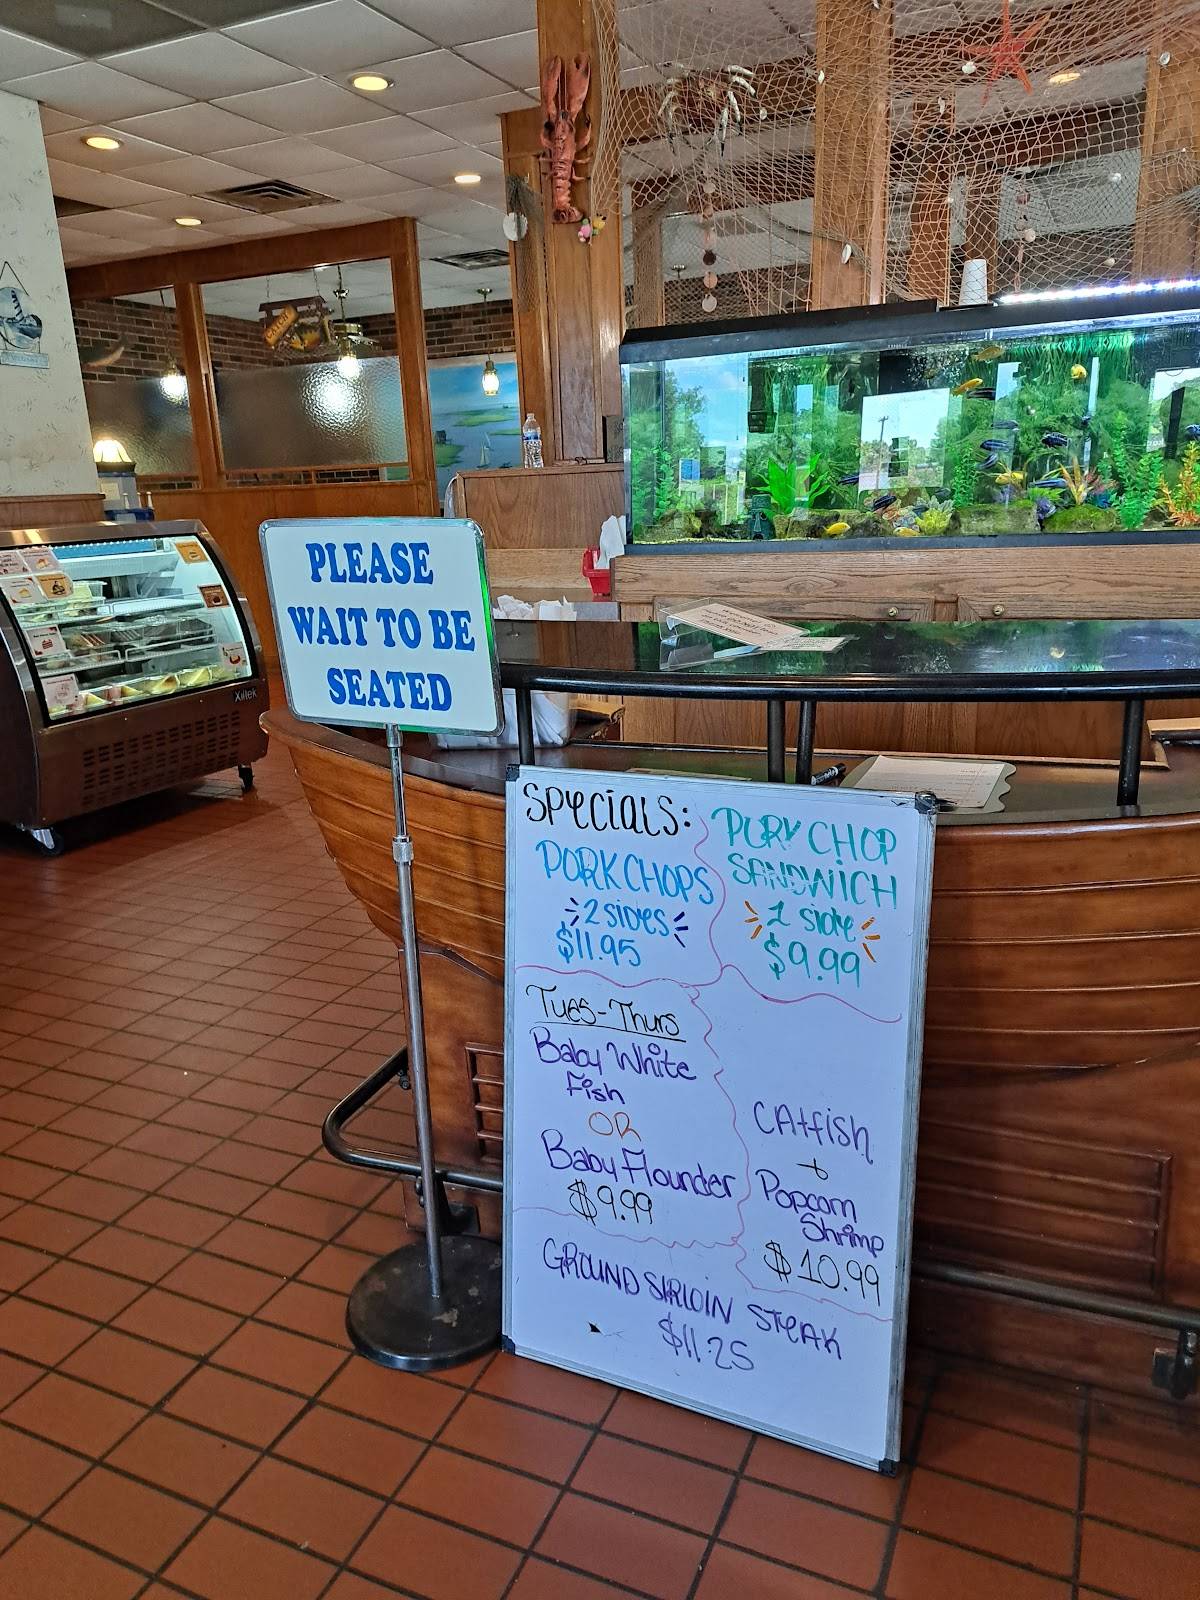 PLEASE
WAIT TO BE
SEATED
Xiltek
SPECIALS:
PORK CHOPS
2 sides
$11.95
PORK CHOP
SANDWICH
1 side
$9.99
Tues-Thurs
Baby White
Fish
OR
Baby Flounder
$9.99
CAtfish
&
Popcorn
Shrimp
$10.99
GROUND SIRLOIN STEAK
$11.25